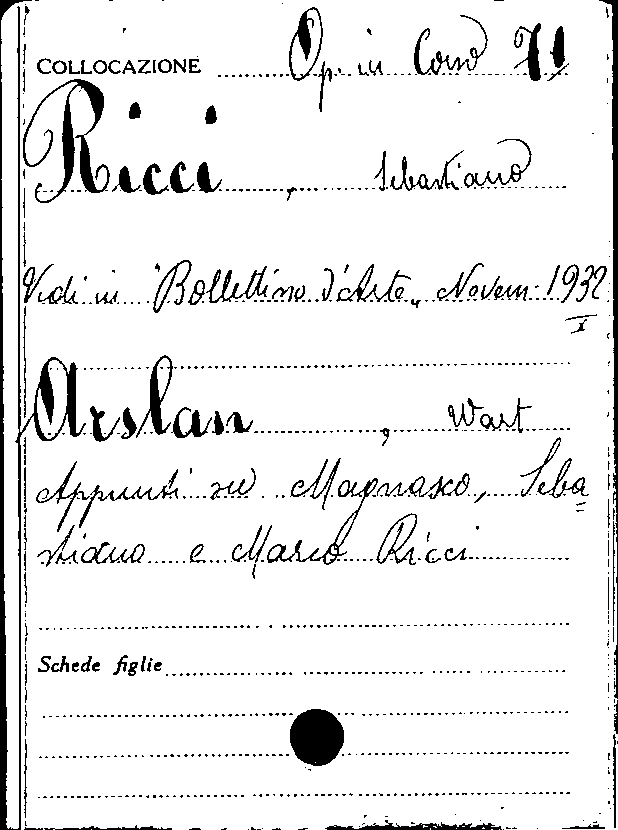 COLLOCAZIONE Op. in Corso 71
Ricci, Sebastiano
Vedi in "Bollettino d'Arte„ Novem. 1932
X
Arslan, Wart
Appunti su Magnasco, Seba=
stiano e Marco Ricci
Schede figlie